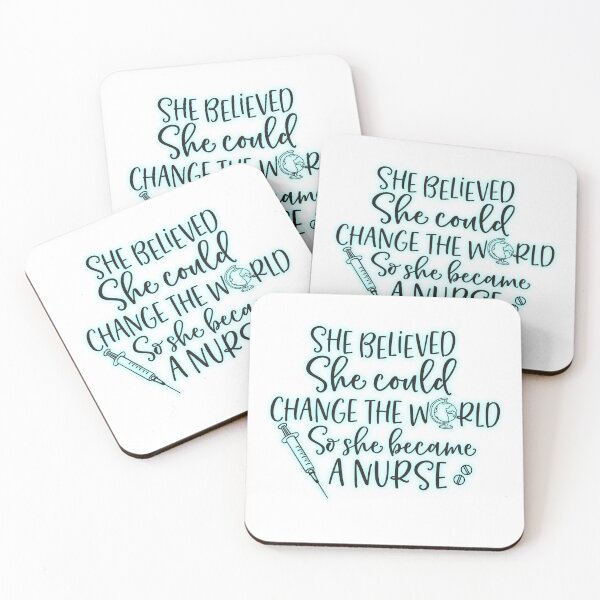 SHE BELiEVED
She could
CHANGE THE
SHE BELiEVED
She could
CHANGE THE WORLD
So she became
A NURSE
SHE BELiEVED
She could
CHANGE THE WORLD
So she
A NURSE
SHE BELiEVED
She could
CHANGE THE WORLD
So she became
A NURSE